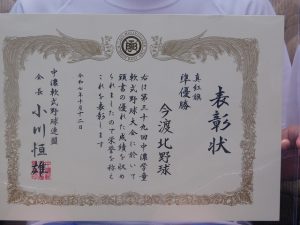 表彰状
真紅旗
準優勝
今渡北野球
右は第三十九回中濃学童
軟式野球大会に於いて
頭書の優れた成績を収め
られましたので栄誉を称え
これを表彰します
令和七年十月十二日
中濃軟式野球連盟
会長 小川恒雄